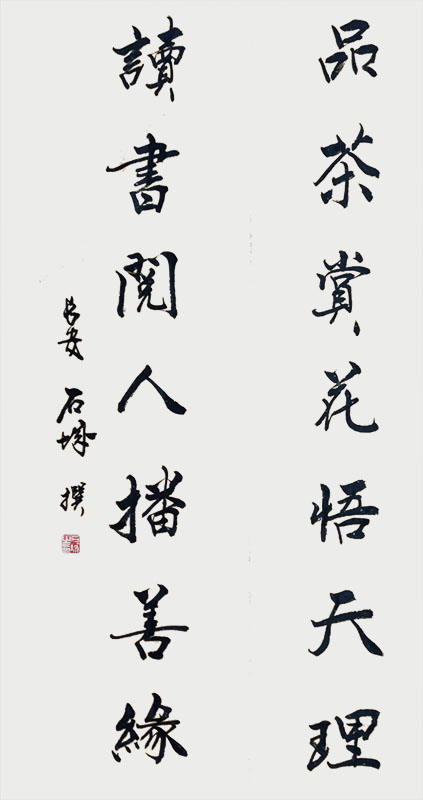 品茶賞花悟天理
讀書閱人播善緣
長安 石城 撰